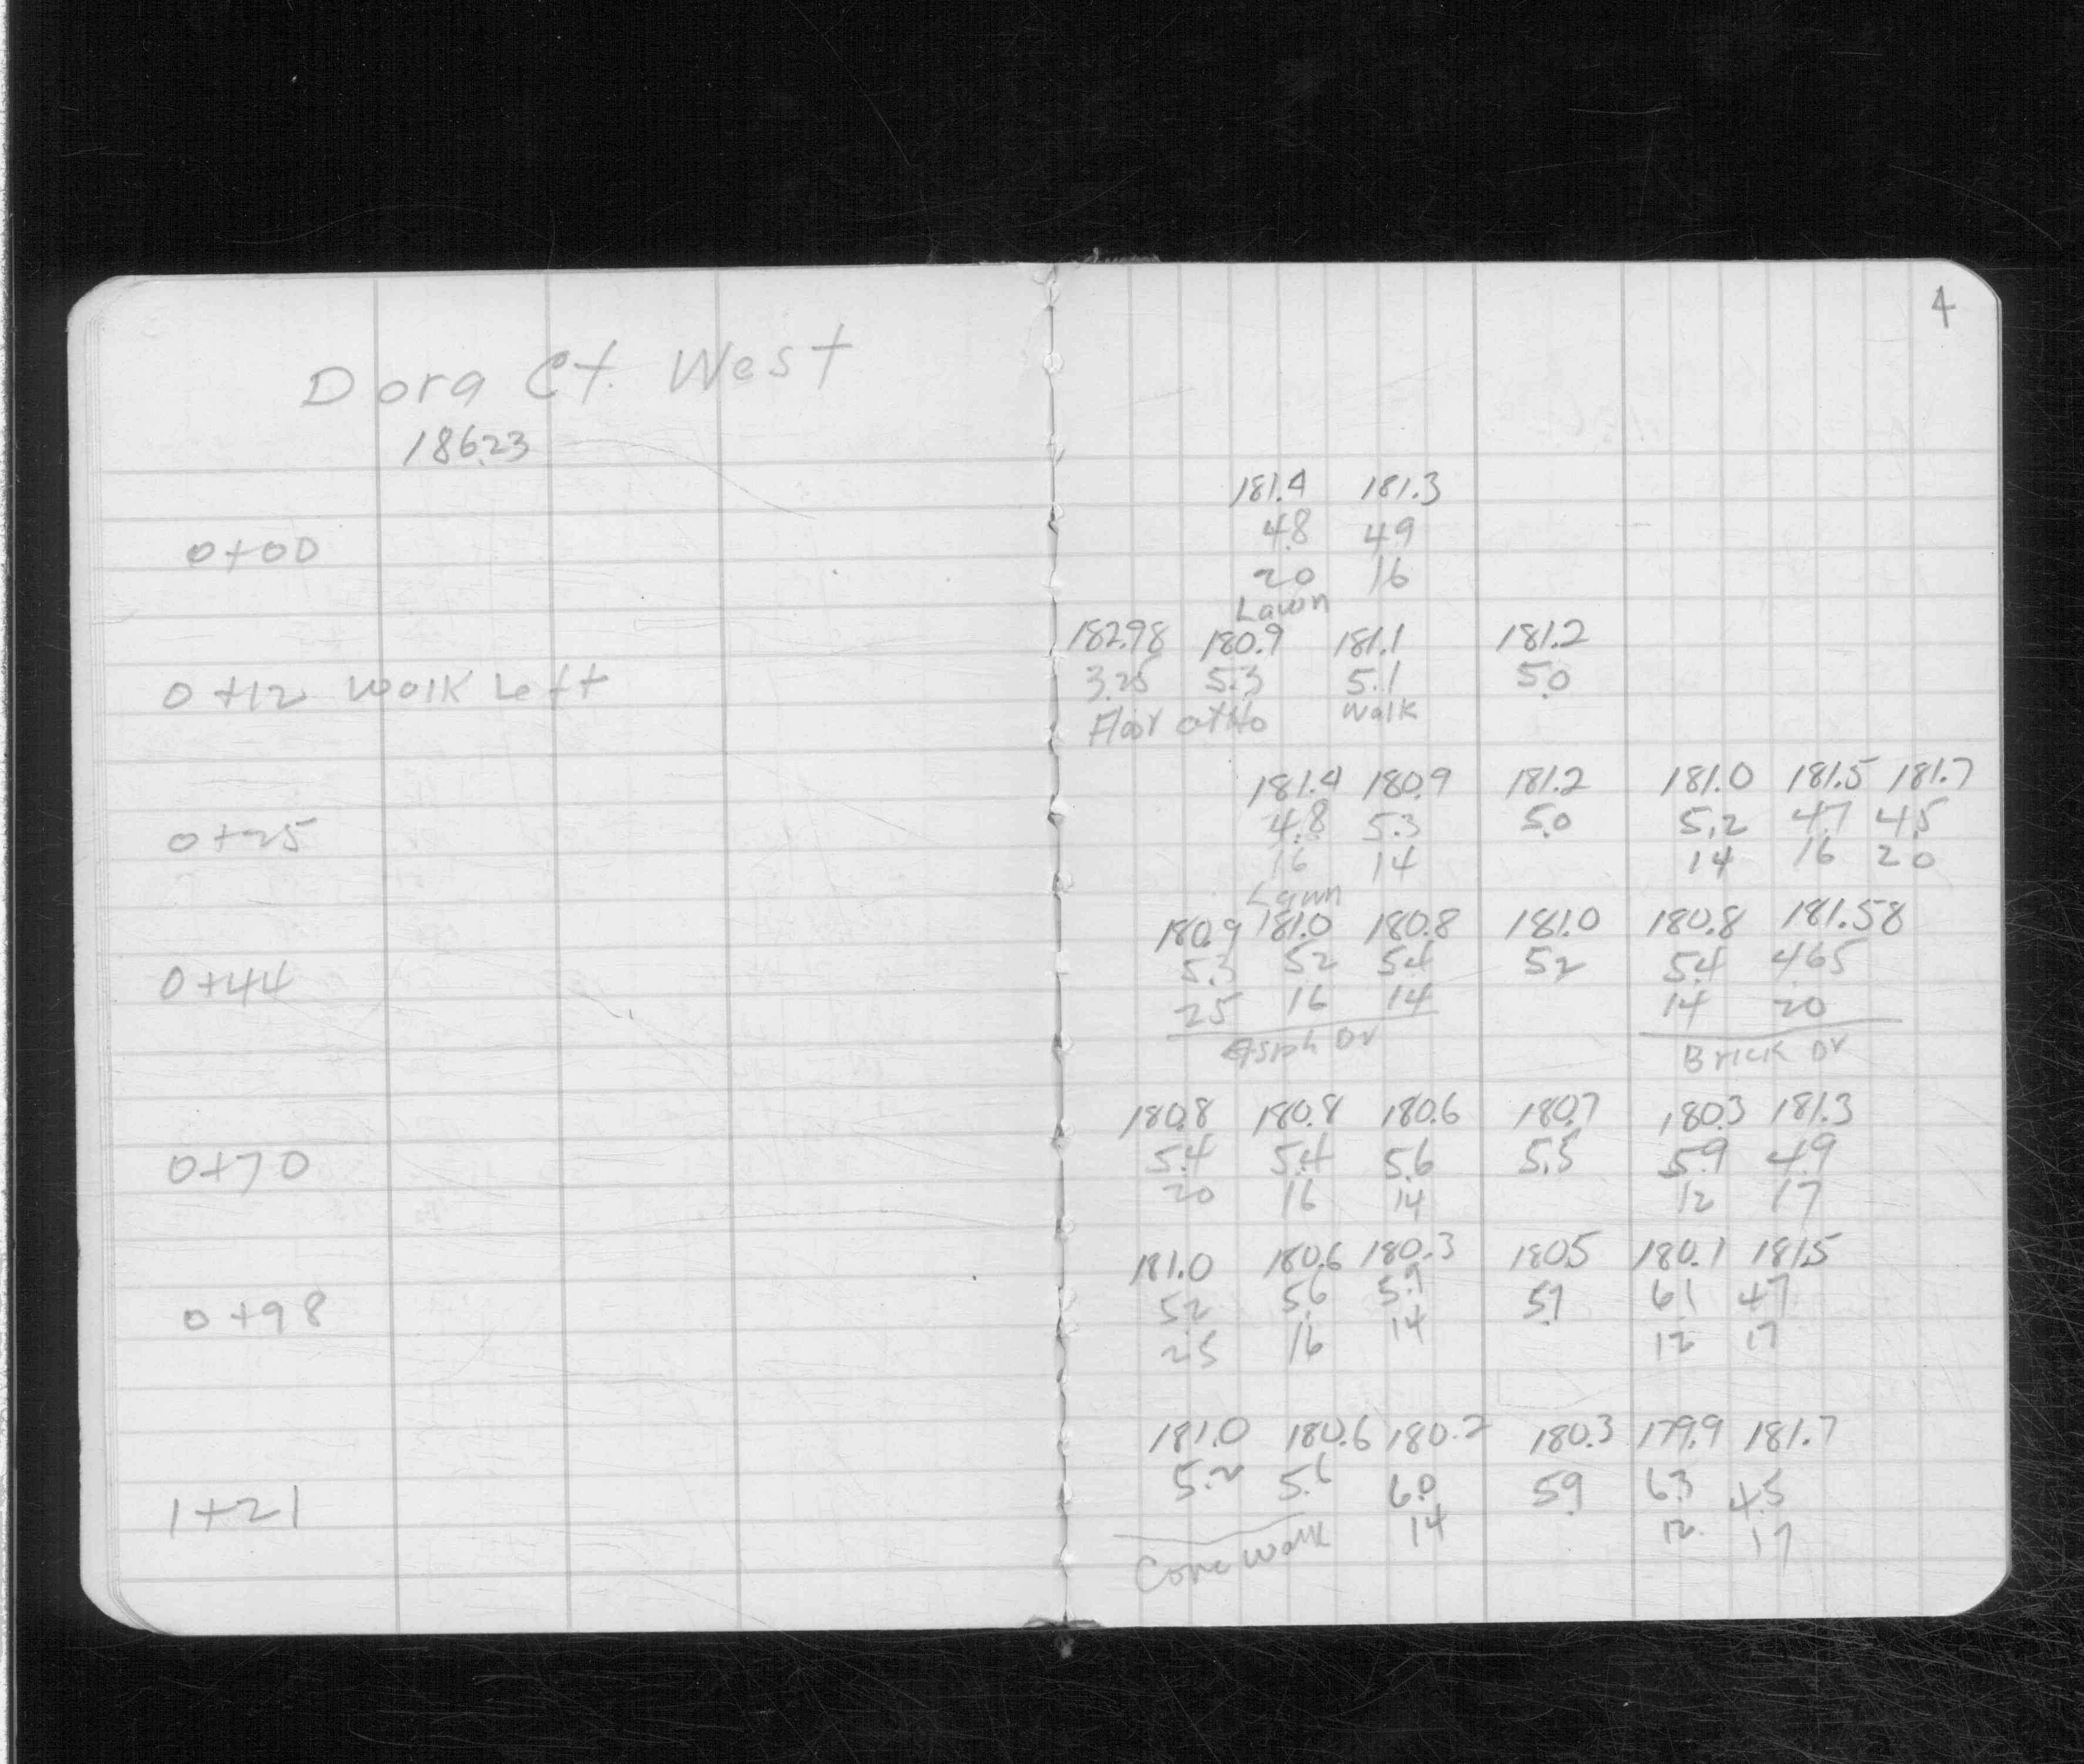 Dora Ct. West
186.23
0+00
0+12 Walk Left
0+25
0+44
0+70
0+98
1+21
4
181.4 181.3
4.8 4.9
20 16
Lawn
182.98 180.9 181.1 181.2
3.25 5.3 5.1 5.0
Floor Walk
181.4 180.9 181.2 181.0 181.5 181.7
4.8 5.3 5.0 5.2 4.7 4.5
16 14 14 16 20
Lawn
180.9 181.0 180.8 181.0 180.8 181.58
5.3 5.2 5.4 5.2 5.4 4.65
25 16 14 14 20
Asph Dr Brick Dr
180.8 180.8 180.6 180.7 180.3 181.3
5.4 5.4 5.6 5.5 5.9 4.9
20 16 14 12 17
181.0 180.6 180.3 180.5 180.1 181.5
5.2 5.6 5.9 5.7 6.1 4.7
25 16 14 12 17
181.0 180.6 180.2 180.3 179.9 181.7
5.2 5.6 6.0 5.9 6.3 4.5
14 12 17
Conc Walk